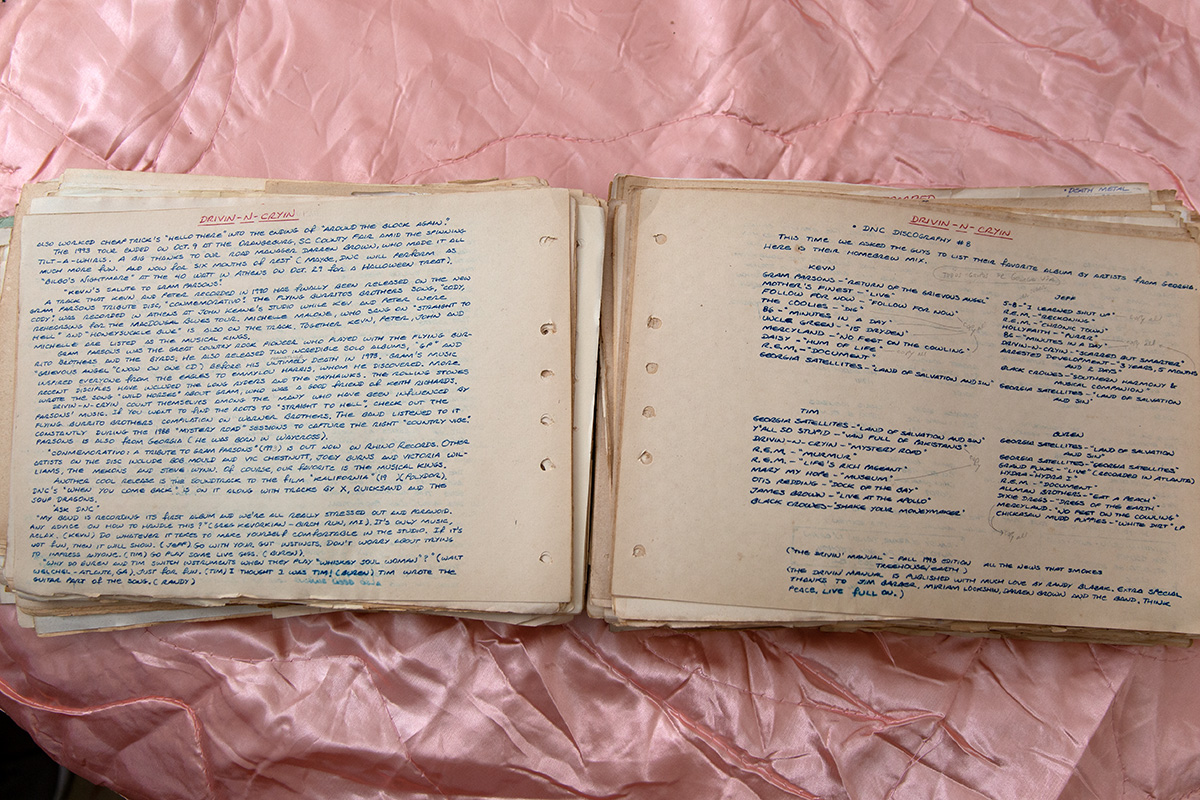 DRIVIN-N-CRYIN
ALSO WORKED CHEAP TRICK'S "HELLO THERE" INTO THE ENDING OF "AROUND THE BLOCK AGAIN."
THE 1993 TOUR ENDED ON OCT. 9 AT THE ORANGEBURG, SC COUNTY FAIR AMID THE SPINNING
TILT-A-WHIRLS. A BIG THANKS TO OUR ROAD MANAGER, DARREN BROWN, WHO MADE IT ALL
MUCH MORE FUN. AND NOW FOR SIX MONTHS OF REST (MAYBE, DNC WILL PERFORM AS
"BILBO'S NIGHTMARE" AT THE 40 WATT IN ATHENS ON OCT. 29 FOR A HALLOWEEN TREAT).
"KEVN'S SALUTE TO GRAM PARSONS"
A TRACK THAT KEVN AND PETER RECORDED IN 1990 HAS FINALLY BEEN RELEASED ON THE NEW
GRAM PARSONS TRIBUTE DISC, "CONMEMORATIVO". THE FLYING BURRITOS BROTHERS SONG, "CODY,
CODY" WAS RECORDED IN ATHENS AT JOHN KEANE'S STUDIO WHILE KEV AND PETER WERE
REHEARSING FOR THE MACDOUGAL BLUES TOUR. MICHELLE MALONE, WHO SANG ON "STRAIGHT TO
HELL" AND "HONEYSUCKLE BLUE" IS ALSO ON THE TRACK. TOGETHER KEVN, PETER, JOHN AND
MICHELLE ARE LISTED AS THE MUSICAL KINGS.
GRAM PARSONS WAS THE GREAT COUNTRY ROCK PIONEER WHO PLAYED WITH THE FLYING BUR-
RITO BROTHERS AND THE BYRDS. HE ALSO RELEASED TWO INCREDIBLE SOLO ALBUMS, "GP" AND
"GRIEVOUS ANGEL" (NOW ON ONE CD) BEFORE HIS ULTIMATELY DEATH IN 1973. GRAM'S MUSIC
INSPIRED EVERYONE FROM THE EAGLES TO EMMYLOU HARRIS, WHOM HE DISCOVERED. MORE
RECENT DISCIPLES HAVE INCLUDED THE LONG RYDERS AND THE JAYHAWKS. THE ROLLING STONES
WROTE THE SONG "WILD HORSES" ABOUT GRAM, WHO WAS A GOOD FRIEND OF KEITH RICHARDS.
DRIVIN-N-CRYIN COUNT THEMSELVES AMONG THE MANY WHO HAVE BEEN INFLUENCED BY
PARSONS' MUSIC. IF YOU WANT TO FIND THE ROOTS TO "STRAIGHT TO HELL", CHECK OUT THE
FLYING BURRITO BROTHERS COMPILATION ON WARNER BROTHERS. THE BAND LISTENED TO IT
CONSTANTLY DURING THE 1988 "MYSTERY ROAD" SESSIONS TO CAPTURE THE RIGHT "COUNTRY VIBE."
PARSONS IS ALSO FROM GEORGIA (HE WAS BORN IN WAYCROSS).
"CONMEMORATIVO: A TRIBUTE TO GRAM PARSONS" (1993) IS OUT NOW ON RHINO RECORDS. OTHER
ARTISTS ON THE DISC INCLUDE BOB MOULD AND VIC CHESTNUTT, JOEY BURNS AND VICTORIA WIL-
LIAMS, THE MEKONS AND STEVE WYNN. OF COURSE, OUR FAVORITE IS THE MUSICAL KINGS.
ANOTHER COOL RELEASE IS THE SOUNDTRACK TO THE FILM "KALIFORNIA" (19 POLYDOR).
DNC'S "WHEN YOU COME BACK" IS ON IT ALONG WITH TRACKS BY X, QUICKSAND AND THE
SOUP DRAGONS.
"ASK DNC"
"MY BAND IS RECORDING ITS FIRST ALBUM AND WE'RE ALL REALLY STRESSED OUT AND PARANOID.
ANY ADVICE ON HOW TO HANDLE THIS?" (GREG KEVORKIAN - BIRCH RUN, MI). IT'S ONLY MUSIC,
RELAX. (KEVN) DO WHATEVER IT TAKES TO MAKE YOURSELF COMFORTABLE IN THE STUDIO. IF IT'S
NOT FUN, THEN IT WILL SHOW. (JEFF). GO WITH YOUR GUT INSTINCTS. DON'T WORRY ABOUT TRYING
TO IMPRESS ANYONE. (TIM) GO PLAY SOME LIVE GIGS. (BUREN).
"WHY DO BUREN AND TIM SWITCH INSTRUMENTS WHEN THEY PLAY "WHISKEY SOUL WOMAN"?" (WALT
WELCHEL - ATLANTA, GA). JUST FOR FUN. (TIM) I THOUGHT I WAS TIM! (BUREN) TIM WROTE THE
GUITAR PART OF THE SONG. (RANDY)
"DEATH METAL
DRIVIN-N-CRYIN
• DNC DISCOGRAPHY #8
THIS TIME WE ASKED THE GUYS TO LIST THEIR FAVORITE ALBUM BY ARTISTS FROM GEORGIA
HERE IS THEIR HOMEBREW MIX.
KEVN
GRAM PARSONS - "RETURN OF THE GRIEVOUS ANGEL"
MOTHER'S FINEST - "LIVE"
FOLLOW FOR NOW - "FOLLOW FOR NOW"
THE COOLIES - "DIE"
86 - "MINUTES IN A DAY"
UNCLE GREEN - "15 DRYDEN"
MERCYLAND - "NO FEET ON THE COWLING"
DAISY - "HUM OF LIFE"
R.E.M. - "DOCUMENT"
GEORGIA SATELLITES - "LAND OF SALVATION AND SIN"
JEFF
5-8 - "I LEARNED SHUT UP"
R.E.M. - "RECKONING"
R.E.M. - "CHRONIC TOWN"
HOLLYFAITH - "PURRR"
86 - "MINUTES IN A DAY"
DRIVIN-N-CRYIN - "SCARRED BUT SMARTER"
ARRESTED DEVELOPMENT - "3 YEARS, 5 MONTHS
AND 2 DAYS"
BLACK CROWES - "SOUTHERN HARMONY &
MUSICAL COMPANION"
GEORGIA SATELLITES - "LAND OF SALVATION
AND SIN"
TIM
GEORGIA SATELLITES - "LAND OF SALVATION AND SIN"
Y'ALL SO STUPID - "VAN FULL OF PAKISTANS"
DRIVIN-N-CRYIN - "MYSTERY ROAD"
R.E.M. - "MURMUR"
R.E.M. - "LIFE'S RICH PAGEANT"
MARY MY HOPE - "MUSEUM"
OTIS REDDING - "DOCK OF THE BAY"
JAMES BROWN - "LIVE AT THE APOLLO"
BLACK CROWES - "SHAKE YOUR MONEYMAKER"
BUREN
GEORGIA SATELLITES - "LAND OF SALVATION
AND SIN"
GEORGIA SATELLITES - "GEORGIA SATELLITES"
GRAND FUNK - "LIVE" (RECORDED IN ATLANTA)
HYDRA - "HYDRA I"
R.E.M. - "DOCUMENT"
ALLMAN BROTHERS - "EAT A PEACH"
DIXIE DREGS - "DREGS OF THE EARTH"
MERCYLAND - "NO FEET ON THE COWLING"
CHICKASAW MUDD PUPPIES - "WHITE DIRT" LP
("THE DRIVIN' MANUAL" - FALL 1993 EDITION ALL THE NEWS THAT SMOKES
TREEHOUSE/EARTH.)
(THE DRIVIN MANUAL IS PUBLISHED WITH MUCH LOVE BY RANDY BLAZAK. EXTRA SPECIAL
THANKS TO JIM BARBER, MYRIAM LOOKSHU, DARREN BROWN AND THE BAND. THINK
PEACE, LIVE FULL ON.)